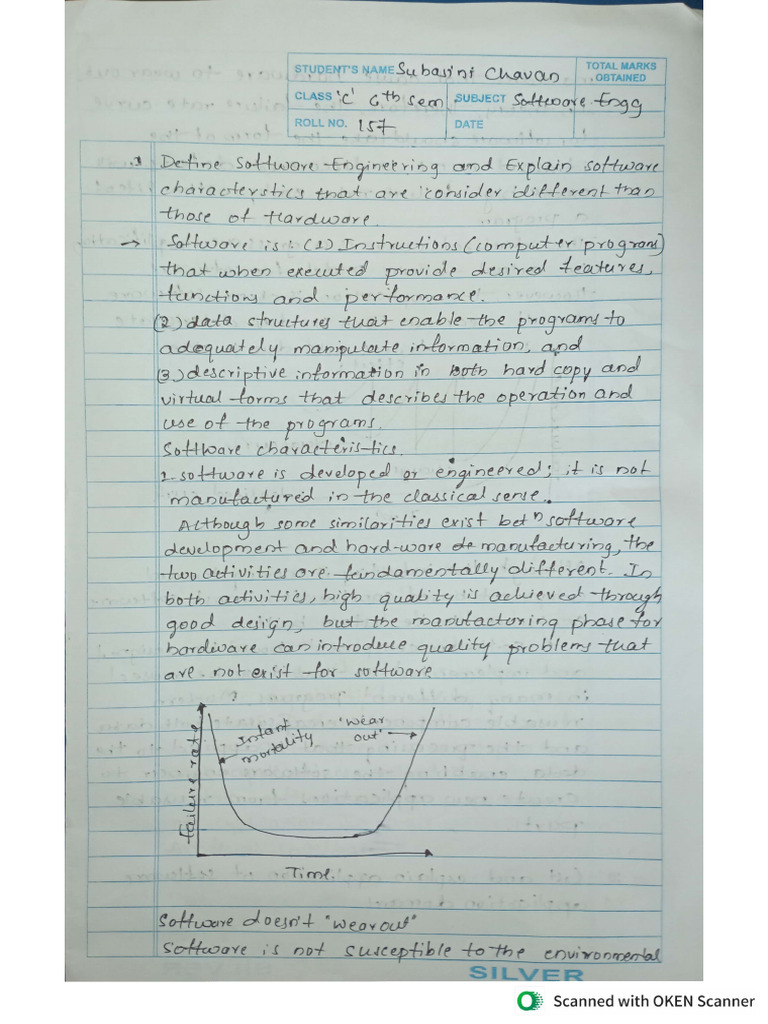 STUDENT'S NAME Subasini Chavan
TOTAL MARKS OBTAINED
CLASS 'C' 6th sem SUBJECT Software Engg
ROLL NO. 157 DATE
1 Define Software Engineering and Explain software
characterstics that are consider different than
those of Hardware.
→ Software is : (1) Instructions (computer programs)
that when executed provide desired features,
functions and performance.
(2) data structures that enable the programs to
adequately manipulate information, and
(3) descriptive information in both hard copy and
virtual forms that describes the operation and
use of the programs.
Software characteristics.
1. software is developed or engineered; it is not
manufactured in the classical sense.
Although some similarities exist betn software
development and hard-ware de manufacturing, the
two activities are fundamentally different. In
both activities, high quality is achieved through
good design, but the manufacturing phase for
hardware can introduce quality problems that
are not exist for software
?
Instant mortality
'wear out'
failure rate
Time.
Software doesn't "wear out"
Software is not susceptible to the environmental
SILVER
Scanned with OKEN Scanner